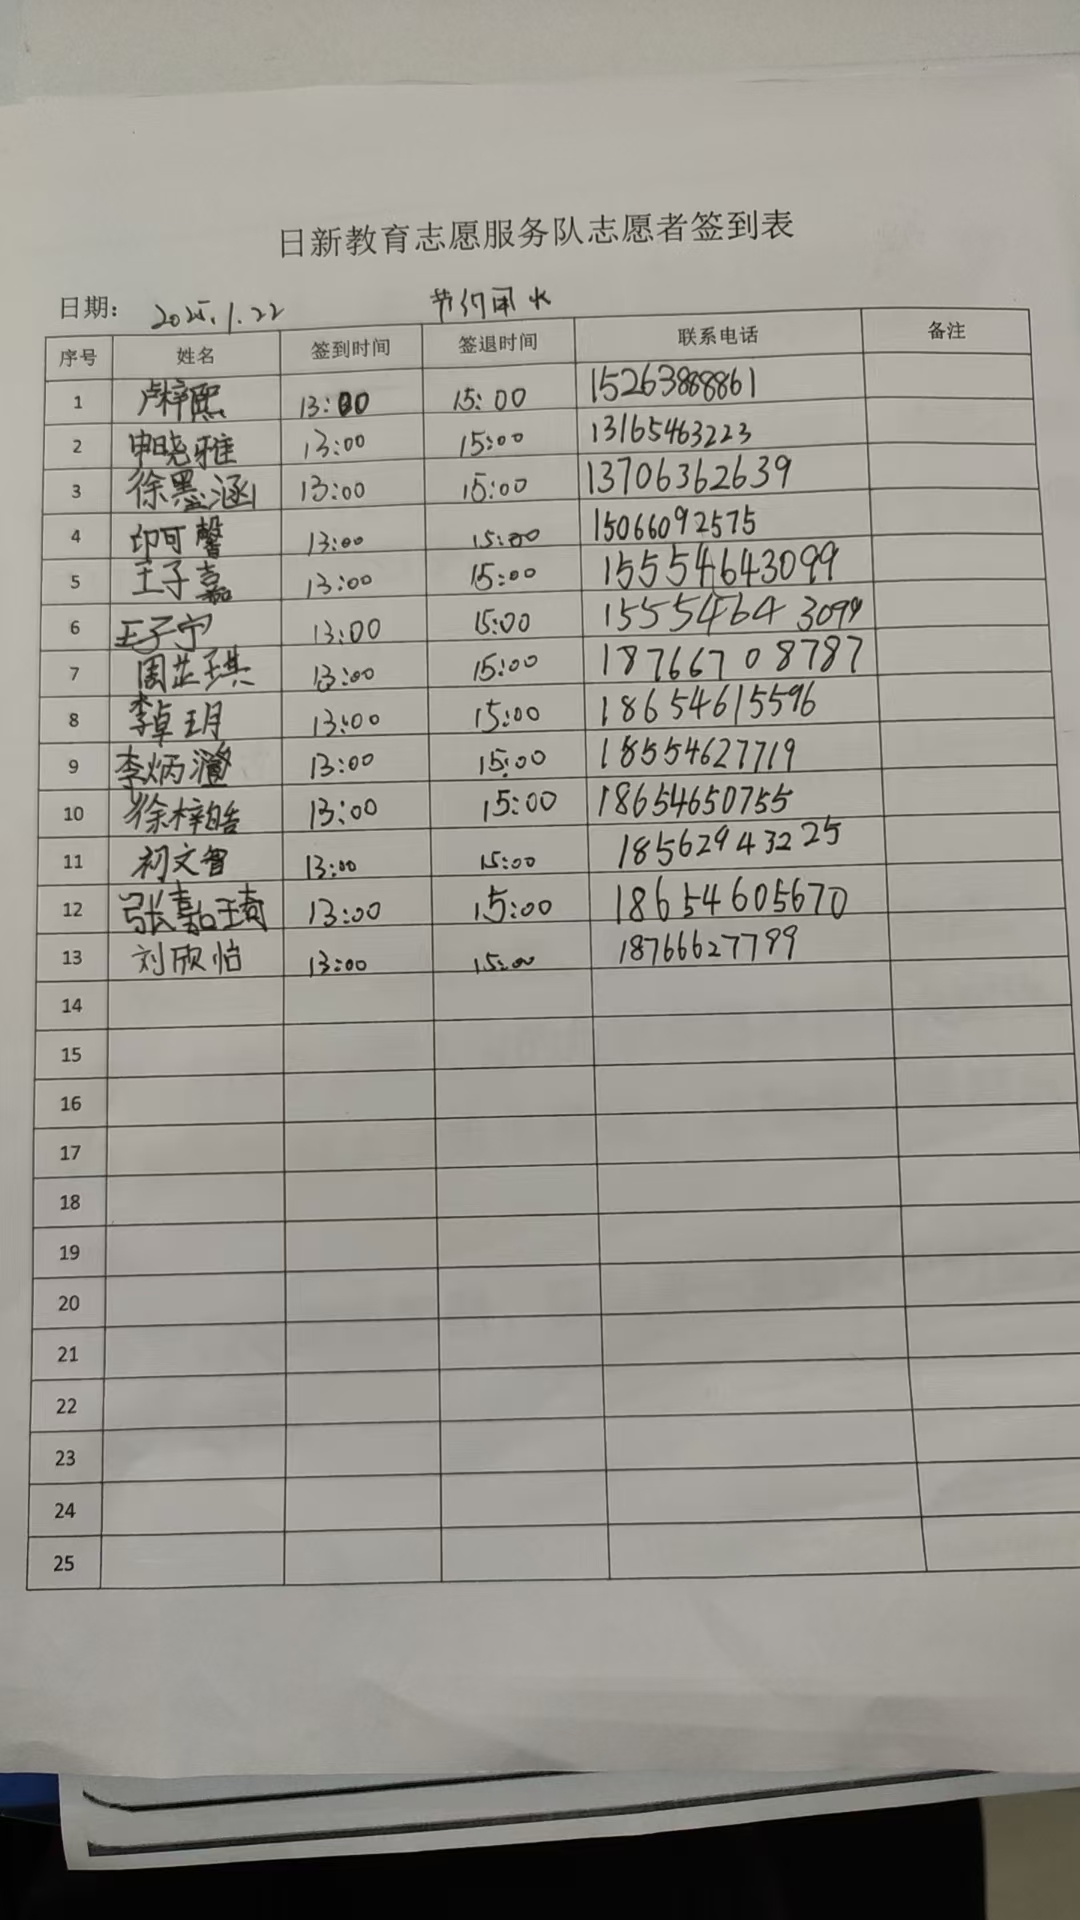 日新教育志愿服务队志愿者签到表
日期: 2025.1.22 节约用水
序号 姓名 签到时间 签退时间 联系电话 备注
1 卢梓熙 13:00 15:00 15263888861
2 申晓雅 13:00 15:00 13165463223
3 徐墨涵 13:00 15:00 13706362639
4 印可馨 13:00 15:00 15066092575
5 王子嘉 13:00 15:00 15554643099
6 王子宁 13:00 15:00 15554643099
7 周芷琪 13:00 15:00 18766708787
8 李卓玥 13:00 15:00 18654615596
9 李炳 13:00 15:00 18554627719
10 徐梓皓 13:00 15:00 18654650755
11 初文智 13:00 15:00 18562943225
12 张嘉琦 13:00 15:00 18654605670
13 刘欣怡 13:00 15:00 18766627799
14
15
16
17
18
19
20
21
22
23
24
25